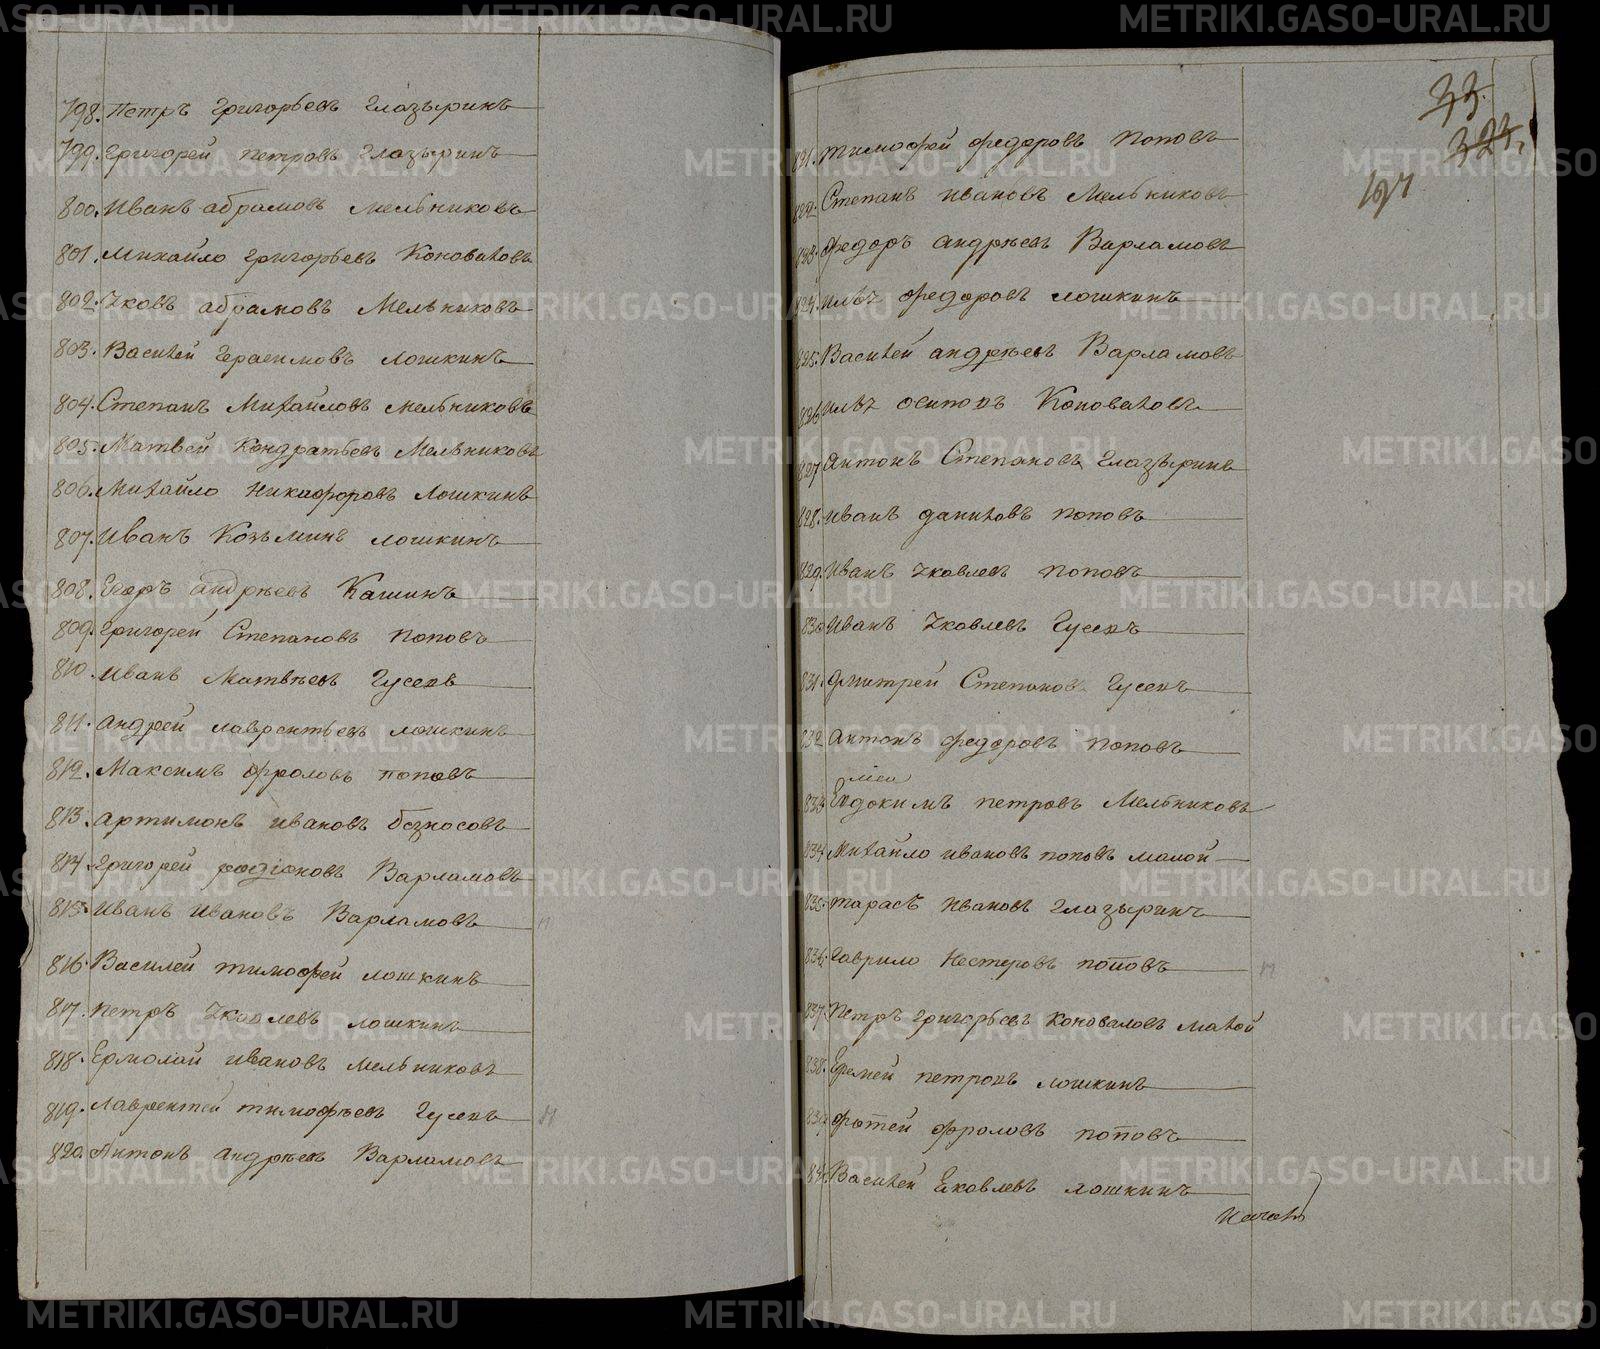 798. Петръ Григорьевъ Глазыринъ
799. Григорей Петровъ Глазыринъ
800. Иванъ Абрамовъ Мельниковъ
801. Михайло Григорьевъ Коноваловъ
802. Яковъ Абрамовъ Мельниковъ
803. Василей Герасимовъ Лошкинъ
804. Степанъ Михайловъ Мельниковъ
805. Матвей Кондратьевъ Мельниковъ
806. Михайло Никифоровъ Лошкинъ
807. Иванъ Козьминъ Лошкинъ
808. Егоръ Андреевъ Кашинъ
809. Григорей Степановъ Поповъ
810. Иванъ Матвѣевъ Гусевъ
811. Андрей Лаврентьевъ Лошкинъ
812. Максимъ Фроловъ Поповъ
813. Артимонъ Ивановъ Безносовъ
814. Григорей Родіоновъ Варламовъ
815. Иванъ Ивановъ Варламовъ
816. Василей Тимофей Лошкинъ
817. Петръ Яковлевъ Лошкинъ
818. Ермолай Ивановъ Мельниковъ
819. Лаврентей Тимофѣевъ Гусевъ
820. Антонъ Андрѣевъ Варламовъ
33.
323.
821. Тимофей Федоровъ Поповъ
822. Степанъ Ивановъ Мельниковъ
823. Федоръ Андрѣевъ Варламовъ
824. Илья Федоровъ Лошкинъ
825. Василей Андрѣевъ Варламовъ
826. Илья Осиповъ Коноваловъ
827. Антонъ Степановъ Глазыринъ
828. Иванъ Даниловъ Поповъ
829. Иванъ Яковлевъ Поповъ
830. Иванъ Яковлевъ Гусевъ
831. Дмитрей Степановъ Гусевъ
832. Антонъ Федоровъ Поповъ
833. Евдокимъ Петровъ Мельниковъ
834. Михайло Ивановъ Поповъ малой
835. Тарасъ Ивановъ Глазыринъ
836. Гаврило Нестеровъ Поповъ
837. Петръ Григорьевъ Коноваловъ малой
838. Еремей Петровъ Лошкинъ
839. Фотей Фроловъ Поповъ
840. Василей Яковлевъ Лошкинъ
METRIKI.GASO-URAL.RU